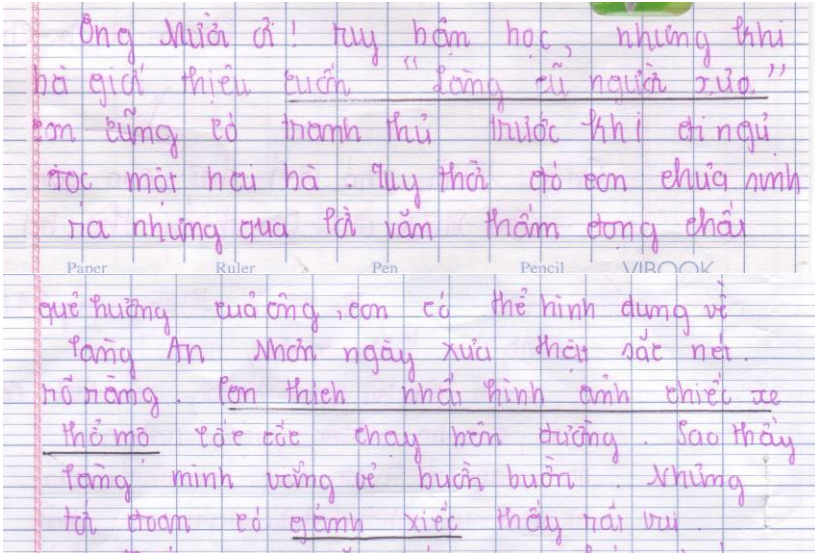 Ông Mười ơi! Tuy bận học, nhưng khi
bà giới thiệu cuốn "Làng cũ người xưa"
con cũng cố tranh thủ trước khi đi ngủ
đọc một hai bà. Tuy thời đó con chưa sinh
ra nhưng qua lời văn thấm đong chất
Paper Ruler Pen Pencil VIBOOK
quê hương của ông, con có thể hình dung về
làng An Nhơn ngày xưa thậy sắc nét.
rõ ràng. Con thích nhất hình ảnh chiếc xe
thổ mộ lóc cóc chạy bên đường. Sao thấy
làng mình vắng vẻ buồn buồn. Nhưng
tới đoạn có gánh xiếc thấy rất vui.